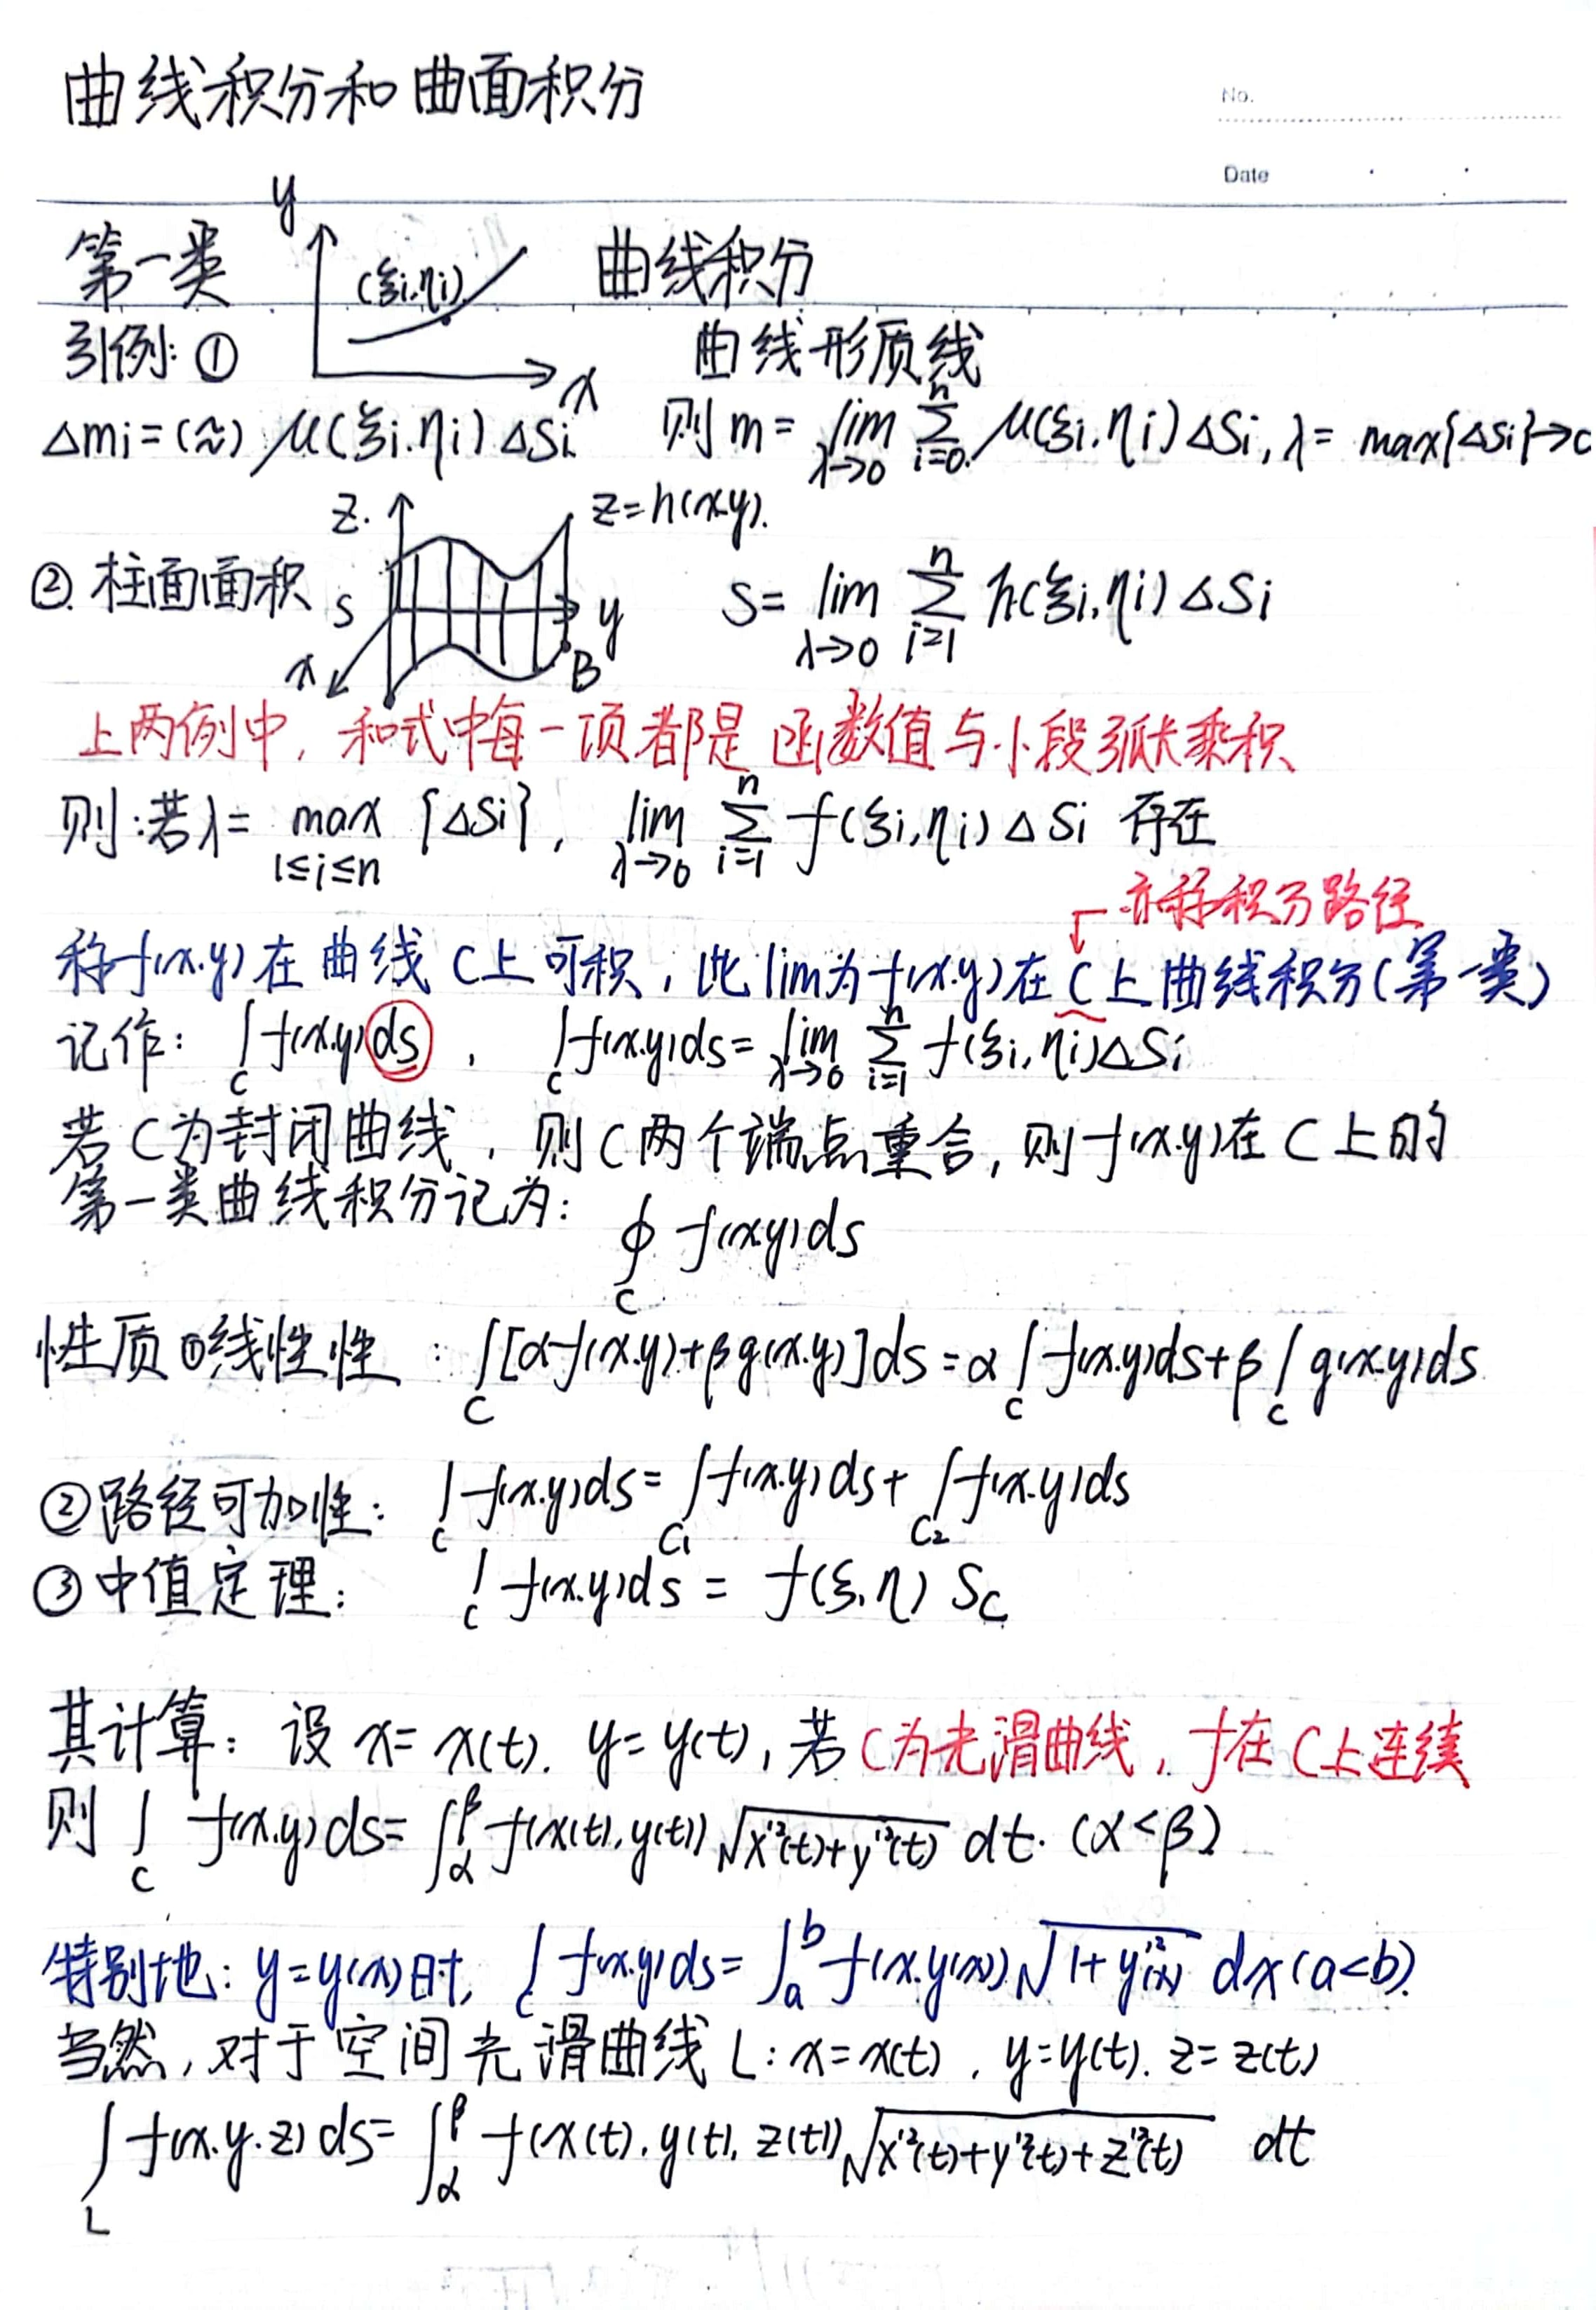 曲线积分和曲面积分
No.
Date
第一类 曲线积分
y
(ξi.ηi)
引例: ① 曲线形质线
x
Δmi=(≈) μ(ξi.ηi)ΔSi 则 m= lim λ→0 n Σ i=0 μ(ξi.ηi)ΔSi, λ= max{ΔSi}→0
z. z=h(x.y).
②. 柱面面积 S y S= lim λ→0 n Σ i=1 h(ξi.ηi)ΔSi
x B
上两例中, 和式中每一项都是函数值与小段弧长乘积
则:若λ= max 1≤i≤n {ΔSi}, lim λ→0 n Σ i=1 f(ξi,ηi)ΔSi 存在
亦称积分路径
称f(x.y)在曲线C上可积, 此lim为f(x.y)在C上曲线积分(第一类)
记作: ∫C f(x.y)ds , ∫C f(x.y)ds= lim λ→0 n Σ i=1 f(ξi,ηi)ΔSi
若C为封闭曲线, 则C两个端点重合, 则f(x.y)在C上的
第一类曲线积分记为:
∮C f(x.y)ds
性质①线性性: ∫C[αf(x.y)+βg(x.y)]ds=α∫C f(x.y)ds+β∫C g(x.y)ds
②路径可加性: ∫C f(x.y)ds= ∫C₁ f(x.y)ds+ ∫C₂ f(x.y)ds
③中值定理: ∫C f(x.y)ds = f(ξ.η) Sc
其计算: 设 x= x(t). y= y(t), 若C为光滑曲线, f在C上连续
则 ∫C f(x.y)ds= ∫αβ f(x(t).y(t))√x'²(t)+y'²(t) dt. (α<β)
特别地: y=y(x)时, ∫C f(x.y)ds= ∫ab f(x.y(x))√1+y'²(x) dx(a<b).
当然, 对于空间光滑曲线L: x=x(t), y=y(t). z= z(t)
∫L f(x.y.z)ds= ∫αβ f(x(t).y(t).z(t))√x'²(t)+y'²(t)+z'²(t) dt